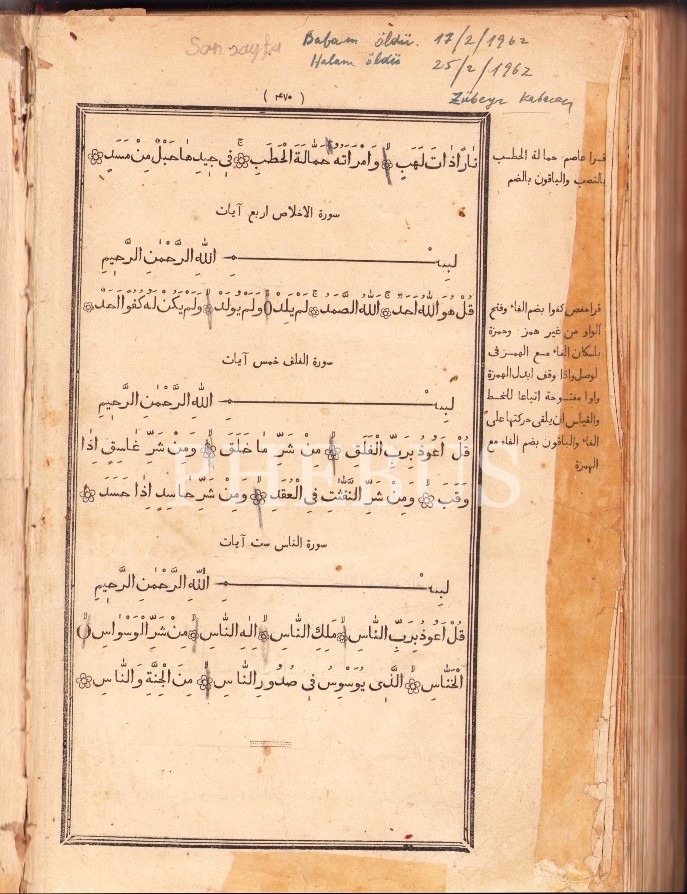 Son sayfa
Babam öldü. 17/2/1962
Halam öldü 25/2/1962
Zübeyr
( ٤٧٥ )
نَارًا ذَاتَ لَهَبٍ وَامْرَاَتُهُ حَمَّالَةَ الْحَطَبِ فِي جِيدِهَا حَبْلٌ مِنْ مَسَدٍ
سورة الاخلاص اربع آيات
بِسْمِ اللّٰهِ الرَّحْمٰنِ الرَّحِيمِ
قُلْ هُوَ اللّٰهُ اَحَدٌ اَللّٰهُ الصَّمَدُ لَمْ يَلِدْ وَلَمْ يُولَدْ وَلَمْ يَكُنْ لَهُ كُفُوًا اَحَدٌ
سورة الفلق خمس آيات
بِسْمِ اللّٰهِ الرَّحْمٰنِ الرَّحِيمِ
قُلْ اَعُوذُ بِرَبِّ الْفَلَقِ مِنْ شَرِّ مَا خَلَقَ وَمِنْ شَرِّ غَاسِقٍ اِذَا
وَقَبَ وَمِنْ شَرِّ النَّفّٰثٰتِ فِي الْعُقَدِ وَمِنْ شَرِّ حَاسِدٍ اِذَا حَسَدَ
سورة الناس ست آيات
بِسْمِ اللّٰهِ الرَّحْمٰنِ الرَّحِيمِ
قُلْ اَعُوذُ بِرَبِّ النَّاسِ مَلِكِ النَّاسِ اِلٰهِ النَّاسِ مِنْ شَرِّ الْوَسْوَاسِ
الْخَنَّاسِ الَّذِي يُوَسْوِسُ فِي صُدُورِ النَّاسِ مِنَ الْجِنَّةِ وَالنَّاسِ
قرا عاصم حمالة الحطب
بالنصب والباقون بالضم
قرا حفص كفوا بضم الفاء وفتح
الواو من غير همز وحمزة
باسكان الفاء مع الهمز فى
لوصل واذا وقف ابدل الهمزة
واوا مفتوحة اتباعا للخط
والقياس ان يلقى حركتها على
الفاء والباقون بضم الفاء مع
الهمزة
PHEBUS